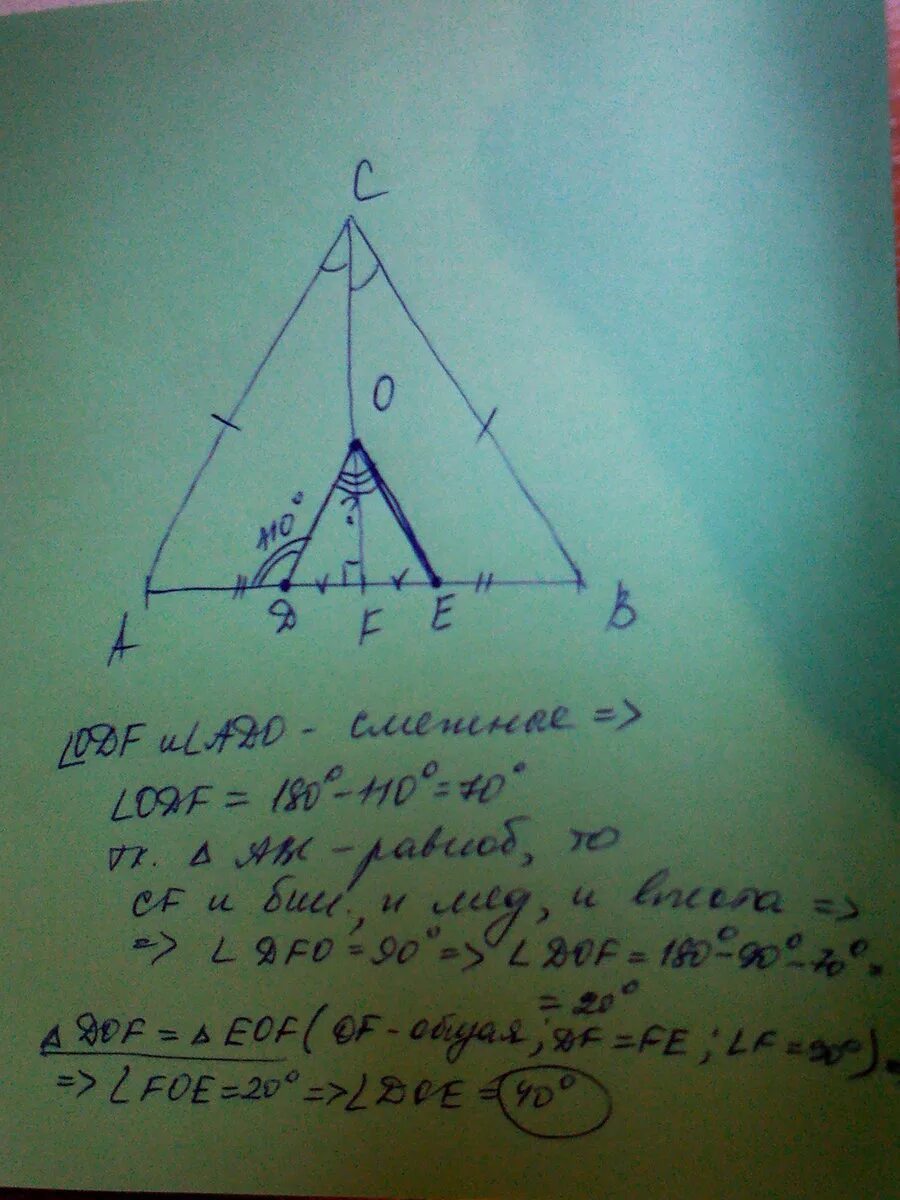 C
O
110°
?
A
D
F
E
B
∠ODF и ∠ADO - смежные =>
∠ODF = 180° - 110° = 70°
тк. △ ABC - равноб, то
CF и бис., и мед, и высота =>
=> ∠DFO = 90° => ∠DOF = 180° - 90° - 70° =
= 20°
△ DOF = △ EOF (OF - общая; DF = FE; ∠F = 90°)
=> ∠FOE = 20° => ∠DOE = 40°